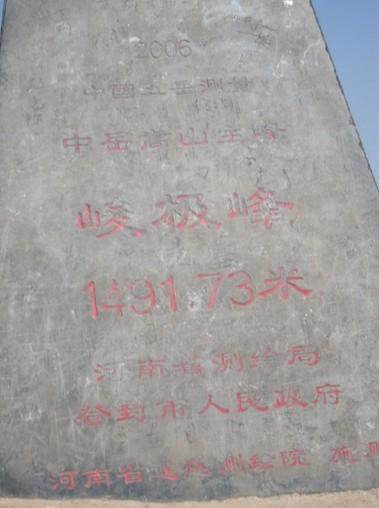 2006
中国五岳测量
中岳嵩山主峰
峻极峰
1491.73米
河南省测绘局
登封市人民政府
河南省遥感测绘院 施测